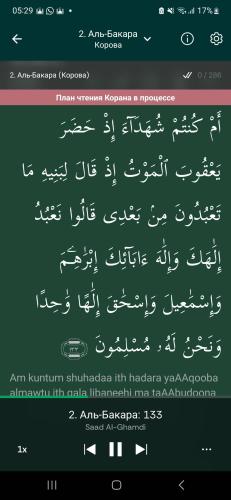 05:29
17%
2. Аль-Бакара
Корова
2. Аль-Бакара (Корова)
0 / 286
План чтения Корана в процессе
أَمْ كُنتُمْ شُهَدَآءَ إِذْ حَضَرَ
يَعْقُوبَ ٱلْمَوْتُ إِذْ قَالَ لِبَنِيهِ مَا
تَعْبُدُونَ مِنۢ بَعْدِى قَالُوا۟ نَعْبُدُ
إِلَٰهَكَ وَإِلَٰهَ ءَابَآئِكَ إِبْرَٰهِـۧمَ
وَإِسْمَٰعِيلَ وَإِسْحَٰقَ إِلَٰهًا وَٰحِدًا
وَنَحْنُ لَهُۥ مُسْلِمُونَ ١٣٣
Am kuntum shuhadaa ith hadara yaAAqooba
almawtu ith qala libaneehi ma taAAbudoona
2. Аль-Бакара: 133
Saad Al-Ghamdi
1x